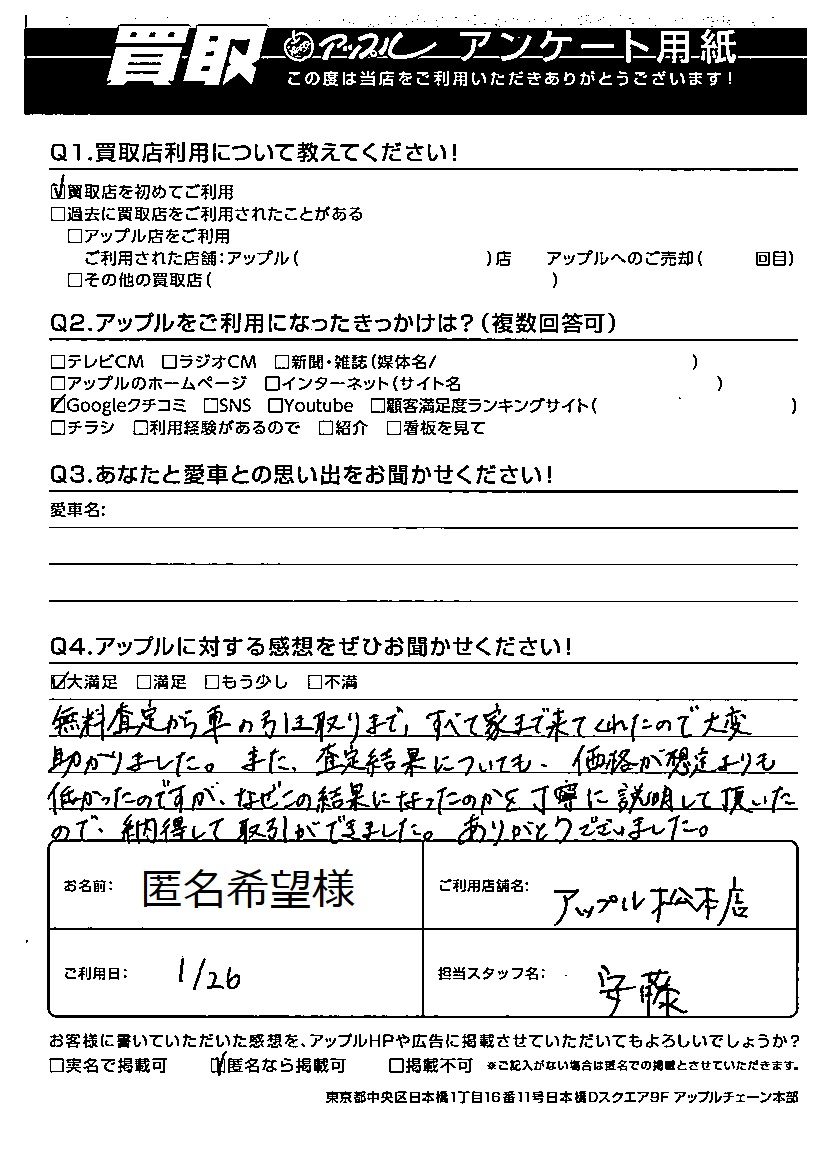 買取 アップル アンケート用紙
この度は当店をご利用いただきありがとうございます!
Q1.買取店利用について教えてください!
☑買取店を初めてご利用
□過去に買取店をご利用されたことがある
□アップル店をご利用
ご利用された店舗:アップル( )店 アップルへのご売却( 回目)
□その他の買取店( )
Q2.アップルをご利用になったきっかけは?(複数回答可)
□テレビCM □ラジオCM □新聞・雑誌(媒体名/ )
□アップルのホームページ □インターネット(サイト名 )
☑Googleクチコミ □SNS □Youtube □顧客満足度ランキングサイト( )
□チラシ □利用経験があるので □紹介 □看板を見て
Q3.あなたと愛車との思い出をお聞かせください!
愛車名:
Q4.アップルに対する感想をぜひお聞かせください!
☑大満足 □満足 □もう少し □不満
無料査定から車の引き取りまで、すべて家まで来てくれたので大変
助かりました。また、査定結果についても、価格が想定よりも
低かったのですが、なぜこの結果になったのかを丁寧に説明して頂いた
ので、納得して取引ができました。ありがとうございました。
お名前: 匿名希望様 ご利用店舗名: アップル松本店
ご利用日: 1/26 担当スタッフ名: 安藤
お客様に書いていただいた感想を、アップルHPや広告に掲載させていただいてもよろしいでしょうか?
□実名で掲載可 ☑匿名なら掲載可 □掲載不可 ※ご記入がない場合は匿名での掲載とさせていただきます。
東京都中央区日本橋1丁目16番11号日本橋Dスクエア9F アップルチェーン本部